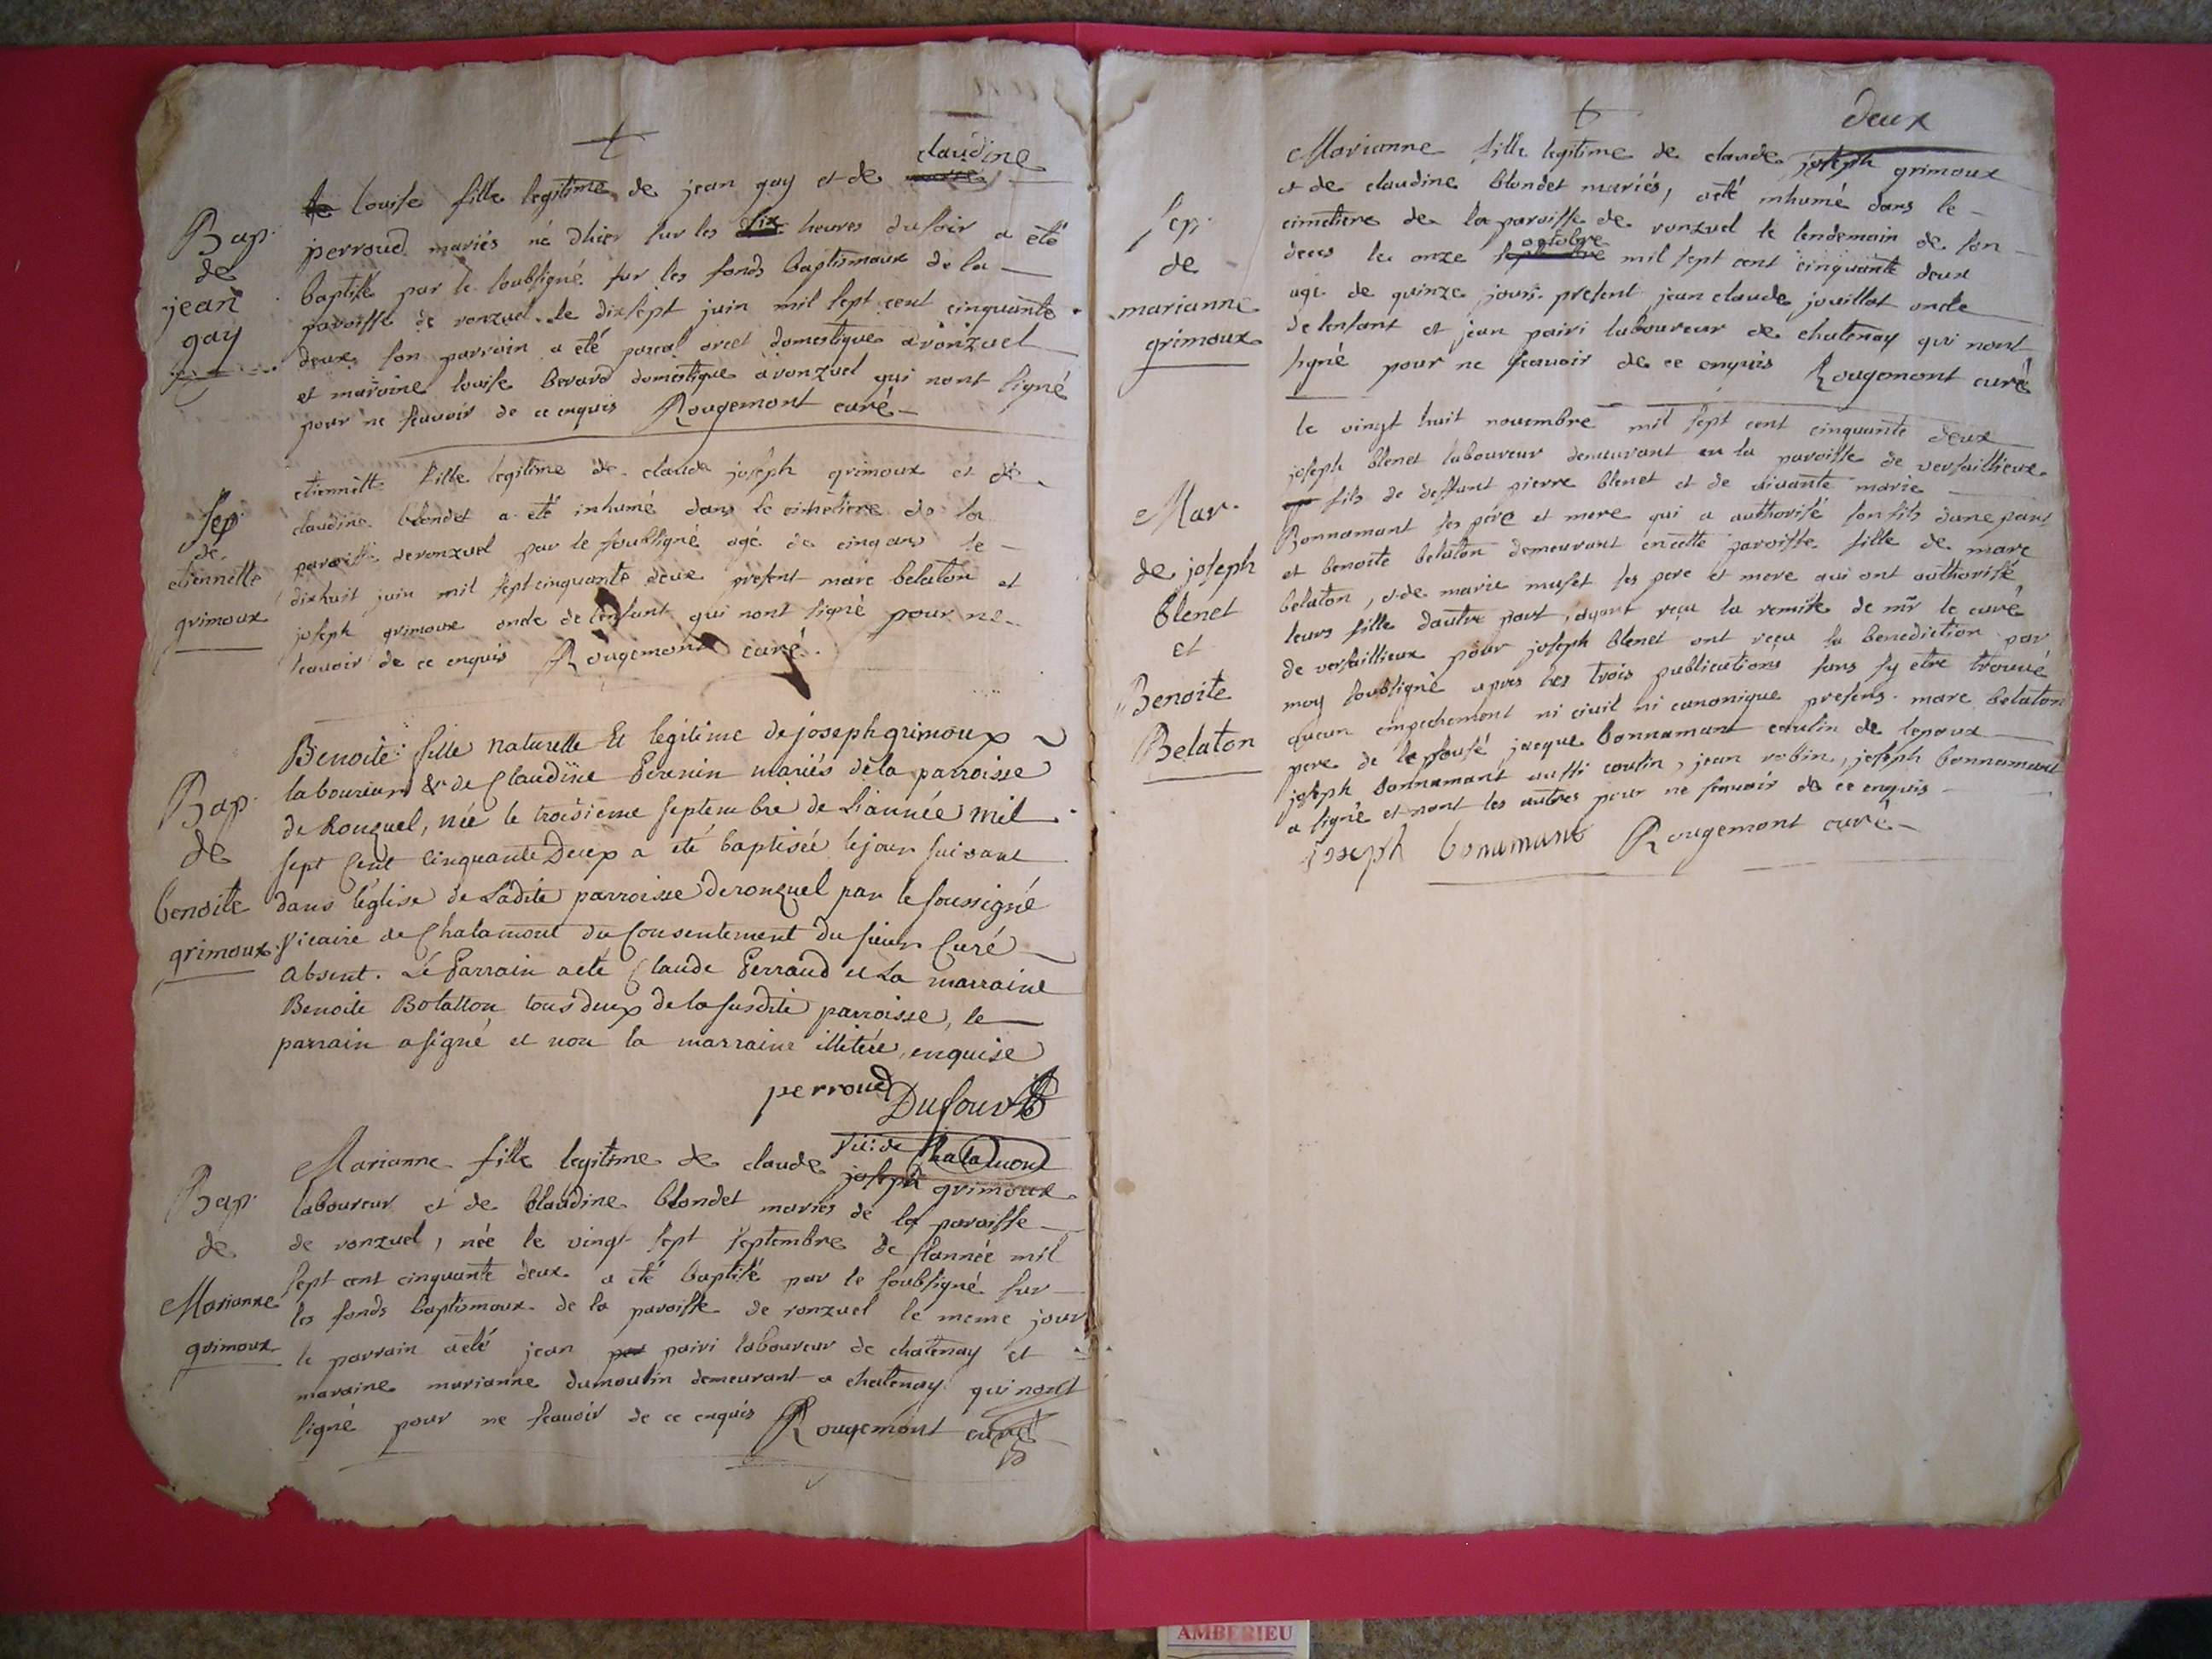 claudine
louise fille legitime de jean gay et de
Bap.
de
jean
gay
perroud mariés né dhier sur les six heures du soir a été
baptisé par le soubsigné sur les fonds baptismaux de la
paroisse de ronzuel le dixsept juin mil sept cent cinquante
deux son parrain a été domestique a ronzuel
et maraine louise berard domestique a ronzuel qui nont signé
pour ne scavoir de ce enquis Rougemont curé
Sep.
de
etiennette
grimoux
etiennette fille legitime de claude joseph grimoux et de
claudine blondet a été inhumé dans le cimetiere de la
paroisse de ronzuel par le soubsigné agé de cinq ans le
dixhuit juin mil sept cinquante deux present marc belaton et
joseph grimoux oncle de lenfant qui nont signé pour ne
scavoir de ce enquis Rougemont curé.
Bap.
de
benoite
grimoux
Benoite fille naturelle Et légitime de joseph grimoux
laboureur & de Claudine mariés de la parroisse
de Ronzuel, née le troisieme septembre de L'année mil
sept Cent Cinquante Deux a été baptisée le jour suivant
dans l'église de Ladite parroisse de ronzuel par le soussigné
Vicaire de Chalamont du Consentement du sieur Curé
Absent. Le Parrain a eté Claude Perraud et La marraine
Benoite Bolatton tous deux de la susdite parroisse, le
parrain a signé et non la marraine illiterée, enquise
perroud
Dufour
Vic: de Chalamont
Bap.
de
Marianne
grimoux
Marianne fille legitime de claude joseph grimoux
laboureur et de claudine blondet mariés de la paroisse
de ronzuel, née le vingt sept septembre de lannée mil
sept cent cinquante deux a été baptisé par le soubsigné sur
les fonds baptismaux de la paroisse de ronzuel le meme jour
le parrain a eté jean pairi laboureur de chatenay et
maraine marianne dumoulin demeurant a chatenay qui nont
signé pour ne scavoir de ce enquis Rougemont curé
deux
Sep.
de
marianne
grimoux
Marianne fille legitime de claude joseph grimoux
et de claudine blondet mariés, a été inhumé dans le
cimetiere de la paroisse de ronzuel le lendemain de son
octobre
deces le onze septembre mil sept cent cinquante deux
agé de quinze jours present jean claude jouillot oncle
de lenfant et jean pairi laboureur de chatenay qui nont
signé pour ne scavoir de ce enquis Rougemont curé
Mar.
de joseph
blenet
et
Benoite
Belaton
le vingt huit novembre mil sept cent cinquante deux
joseph blenet laboureur demeurant en la paroisse de versaillieux
fils de deffunt pierre blenet et de vivante marie
Bonnamant ses pere et mere qui a authorisé son fils dune part
et benoite belaton demeurant en cette paroisse fille de marc
belaton, et de marie muset ses pere et mere qui ont authorisé
leurs fille dautre part, ayant reçu la remise de mr le curé
de versaillieux pour joseph blenet ont reçu la benediction par
moy soubsigné apres les trois publications sans sy etre trouvé
aucun empechement ni civil ni canonique presens marc belaton
pere de lepousé jacque bonnamant cousin de lepoux
joseph bonnamant aussi cousin, jean robin, joseph bonnamant
a signé et nont les autres pour ne scavoir de ce enquis
joseph bonamant Rougemont curé
AMBERIEU